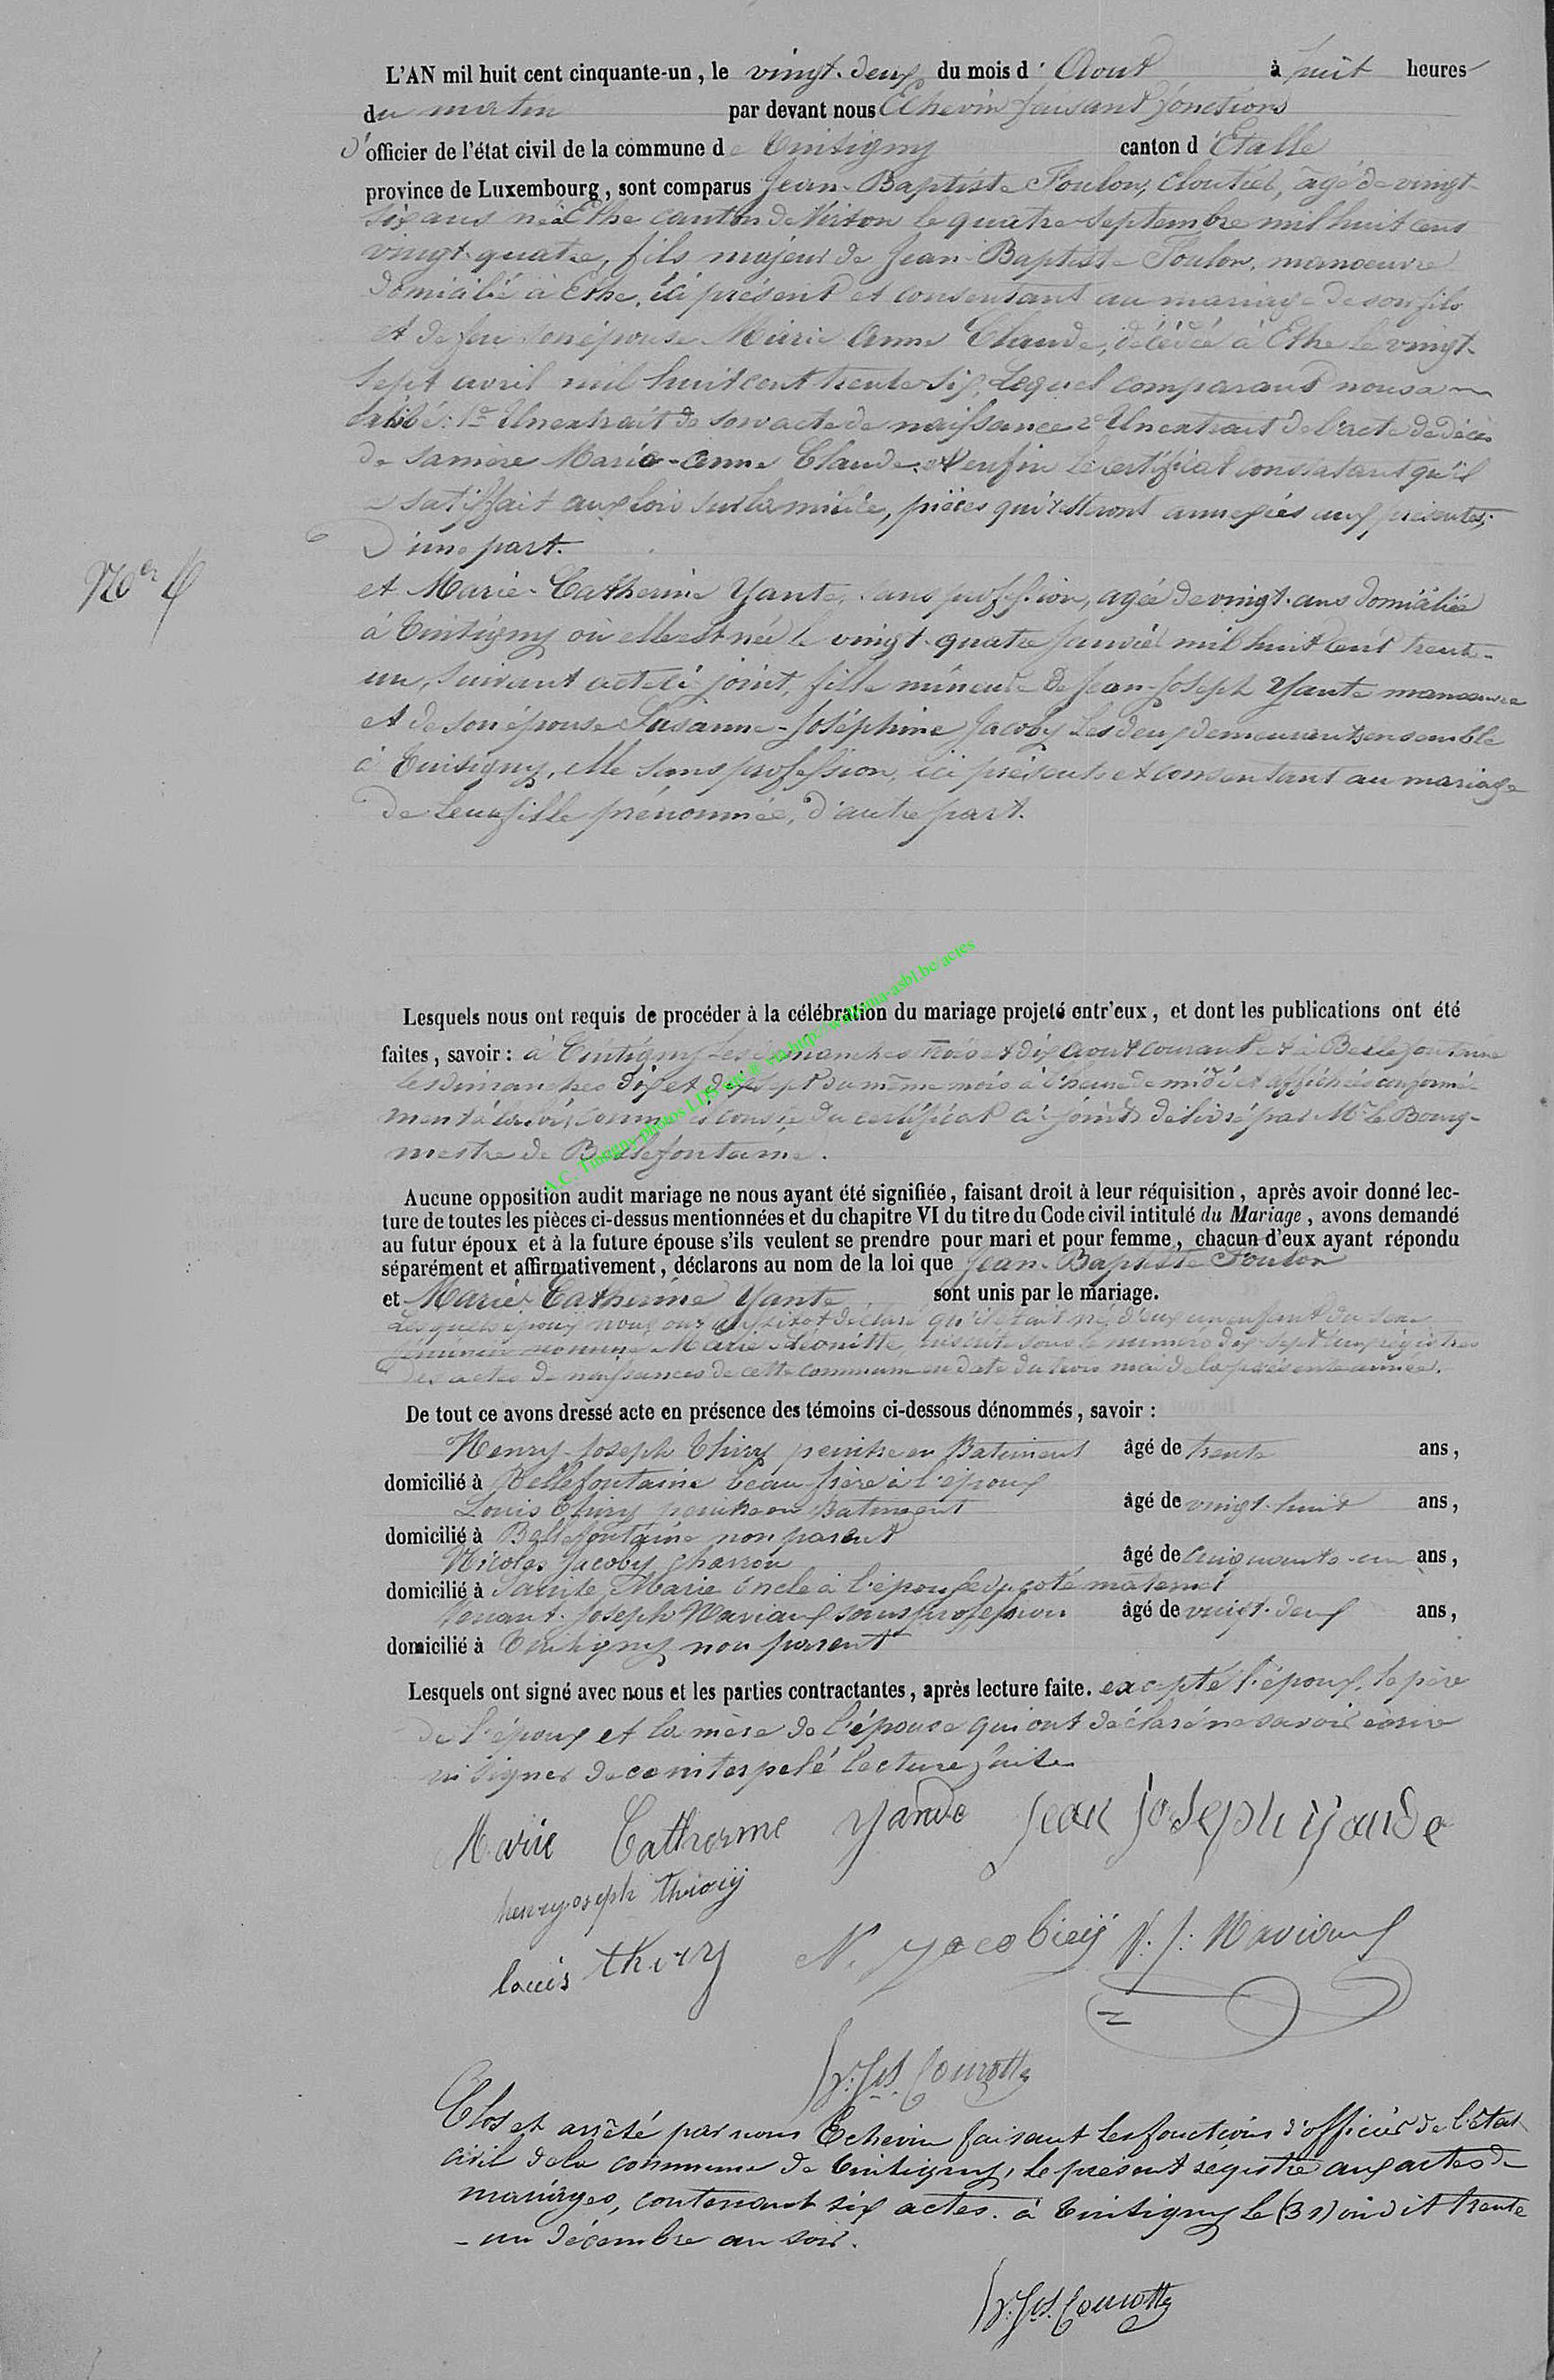 L'AN mil huit cent cinquante-un, le vingt-deux du mois d'Aout à huit heures
du matin par devant nous Echevin faisant fonctions
d'officier de l'état civil de la commune de Tintigny canton d'Etalle
province de Luxembourg, sont comparus Jean-Baptiste Foulon, cloutier, âgé de vingt-
six ans né à Ethe canton de Virton le quatre Septembre mil huit cent
vingt-quatre, fils majeur de Jean-Baptiste Foulon, manoeuvre
domicilié à Ethe, ici présent et consentant au mariage de son fils
et de feu son épouse Marie Anne Claude, décédée à Ethe le vingt-
Sept avril mil huit cent trente-six, Lequel comparant nous a
exhibé: 1º Un extrait de son acte de naissance 2º Un extrait de l'acte de décès
de sa mère Marie-Anne Claude, et enfin le certificat constatant qu'il
a satisfait aux lois sur la milice, pièces qui resteront annexées aux présentes;
D'une part.
Nº 6
et Marie-Catherine Yante, sans profession, agée de vingt ans domiciliée
à Tintigny où elle est née le vingt-quatre Janvier mil huit cent trente-
un, Suivant acte ci-joint, fille mineure de Jean-Joseph Yante manoeuvre
et de son épouse Susanne-Joséphine Jacoby Les deux demeurant ensemble
à Tintigny, elle sans profession, ici présents et consentant au mariage
de Leur fille prénommée, d'autre part.
Lesquels nous ont requis de procéder à la célébration du mariage projeté entr'eux, et dont les publications ont été
faites, savoir: à Tintigny les dimanches trois et dix Aout courant et à Bellefontaine
les dimanches dix et dix sept du même mois à l'heure de midi et affichées conformé-
ment à la loi, comme il conste du certificat ci-joint délivré par Mr. le Bourg-
mestre de Bellefontaine.
A.C. Tintigny photos LDS sur http://wallonia-asbl.be/actes
Aucune opposition audit mariage ne nous ayant été signifiée, faisant droit à leur réquisition, après avoir donné lec-
ture de toutes les pièces ci-dessus mentionnées et du chapitre VI du titre du Code civil intitulé du Mariage, avons demandé
au futur époux et à la future épouse s'ils veulent se prendre pour mari et pour femme, chacun d'eux ayant répondu
séparément et affirmativement, déclarons au nom de la loi que Jean-Baptiste Foulon
et Marie-Catherine Yante sont unis par le mariage.
Lesquels époux nous ont aussitôt déclaré qu'il était né d'eux un enfant du sexe
féminin nommé Marie Léonitte, inscrite sous le numéro dix-sept aux régistres
des actes de naissances de cette commune en date du trois mai de la présente année.
De tout ce avons dressé acte en présence des témoins ci-dessous dénommés, savoir:
Henry-Joseph Thiry peintre en Batiment âgé de trente ans,
domicilié à Bellefontaine beau-frère à l'époux
Louis Thiry peintre en Batiment âgé de vingt-huit ans,
domicilié à Bellefontaine non parent
Nicolas Jacoby charron âgé de cinquante-un ans,
domicilié à Sainte Marie oncle à l'épouse du coté maternel
Joseph Maviaux sans profession âgé de vingt-deux ans,
domicilié à Tintigny non parent
Lesquels ont signé avec nous et les parties contractantes, après lecture faite. excepté l'époux, le père
de l'époux et la mère de l'épouse qui ont déclaré ne savoir écrire
ni signer de ce interpelé lecture faite
Marie Catherine yande Jean joseph yande
henry joseph thiry
louis thiry N. Jacobiey J. Maviaux
Jos. Courotte
Clos et arrêté par nous Echevin faisant les fonctions d'officier de l'état
civil de la commune de Tintigny, le présent régistre aux actes de
mariages, contenant six actes. à Tintigny le (31) on dit trente
-un décembre au soir.
Jos. Courotte